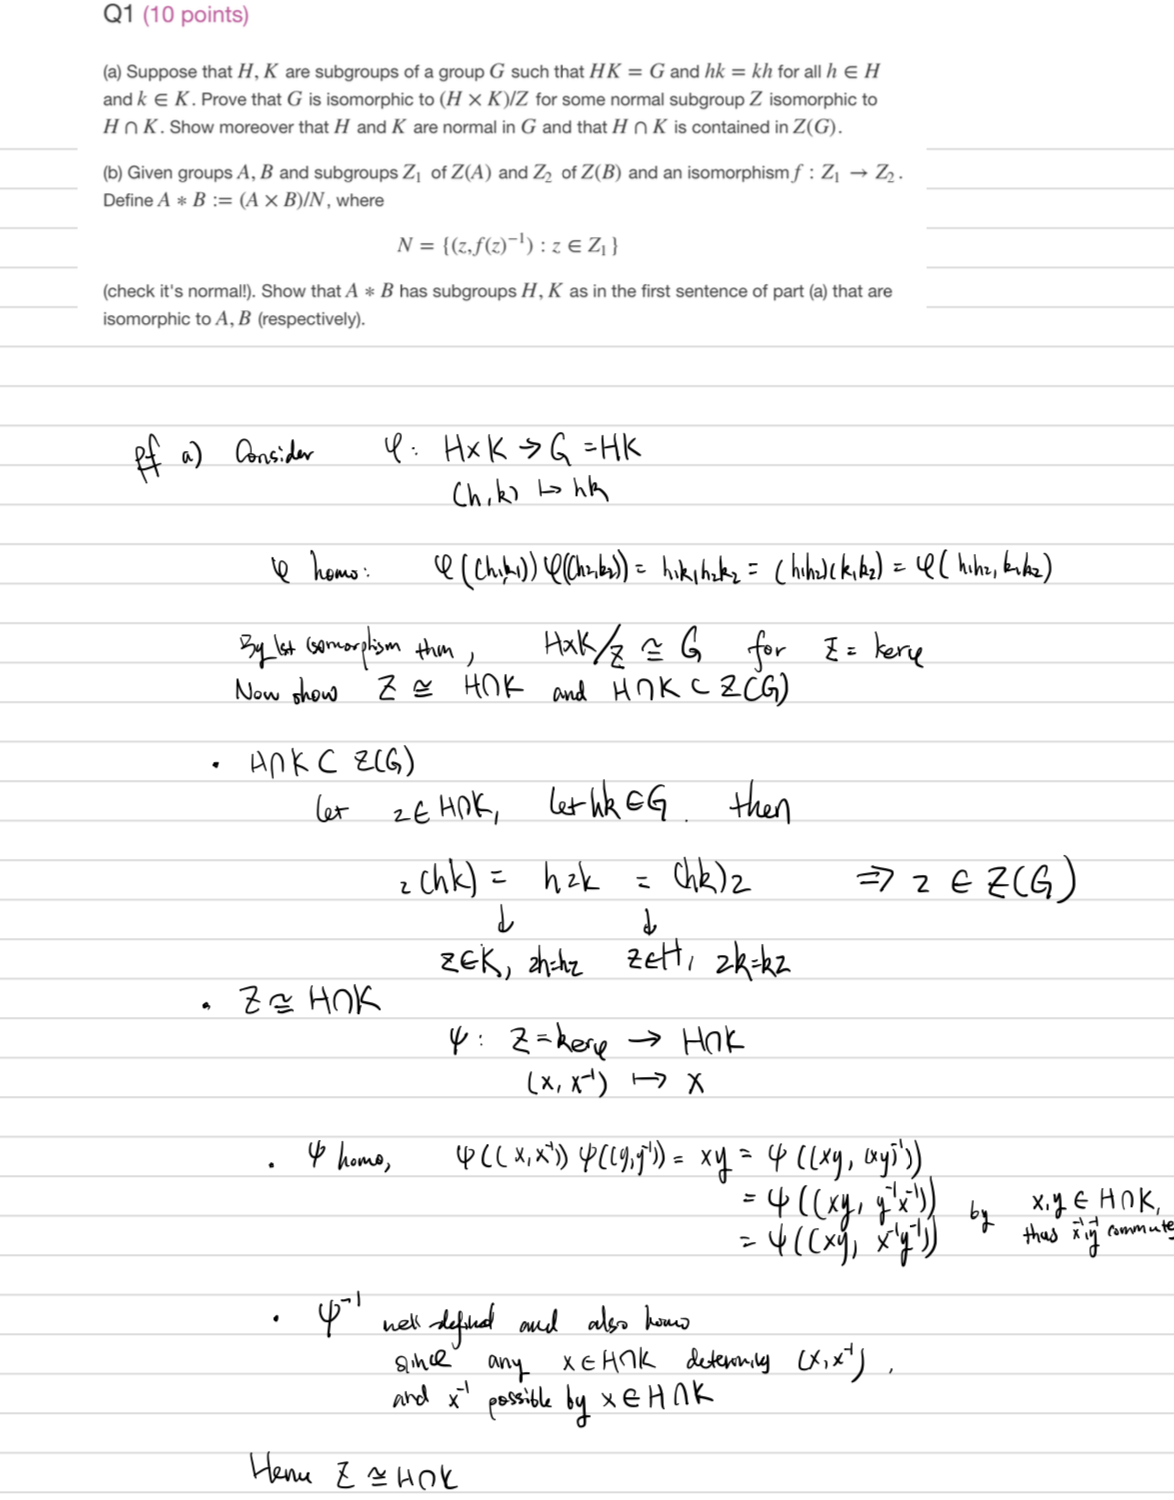 Q1 (10 points)
(a) Suppose that H, K are subgroups of a group G such that HK = G and hk = kh for all h ∈ H
and k ∈ K. Prove that G is isomorphic to (H × K)/Z for some normal subgroup Z isomorphic to
H ∩ K. Show moreover that H and K are normal in G and that H ∩ K is contained in Z(G).
(b) Given groups A, B and subgroups Z₁ of Z(A) and Z₂ of Z(B) and an isomorphism f : Z₁ → Z₂.
Define A ∗ B := (A × B)/N, where
N = {(z, f(z)⁻¹) : z ∈ Z₁}
(check it's normal!). Show that A ∗ B has subgroups H, K as in the first sentence of part (a) that are
isomorphic to A, B (respectively).
pf a) Consider φ: H×K → G = HK
(h,k) ↦ hk
φ homo: φ((h₁,k₁)) φ((h₂,k₂)) = h₁k₁h₂k₂ = (h₁h₂)(k₁k₂) = φ(h₁h₂, k₁k₂)
By 1st isomorphism thm, H×K/Z ≅ G for Z = kerφ
Now show Z ≅ H∩K and H∩K ⊂ Z(G)
• H∩K ⊂ Z(G)
let z ∈ H∩K, let hk ∈ G. then
z(hk) = hzk = (hk)z ⇒ z ∈ Z(G)
↓ ↓
z∈K, zh=hz z∈H, zk=kz
• Z ≅ H∩K
ψ: Z = kerφ → H∩K
(x, x⁻¹) ↦ x
• ψ homo, ψ((x,x⁻¹)) ψ((y,y⁻¹)) = xy = ψ((xy, (xy)⁻¹))
= ψ((xy, y⁻¹x⁻¹)) by x,y ∈ H∩K,
= ψ((xy, x⁻¹y⁻¹)) thus x⁻¹,y⁻¹ commute
• ψ⁻¹ well-defined and also homo
since any x∈H∩K (x,x⁻¹),
and x⁻¹ possible by x∈H∩K
Hence Z ≅ H∩K